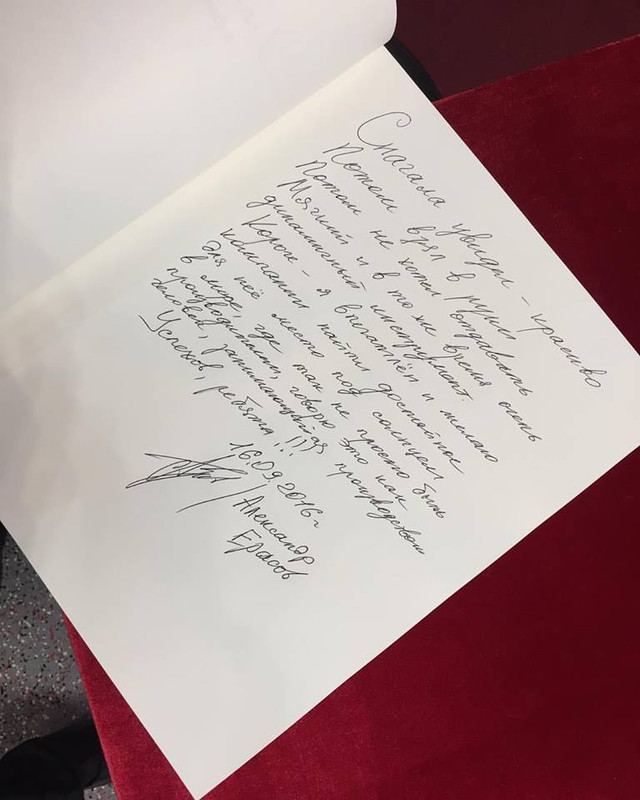 Сначала увидел - красиво
Потом взял в руки
Потом не хотел отдавать
Мягкий и в то же время очень
динамичный инструмент.
Короче - я впечатлён и желаю
компании найти достойное
для неё место под солнцем
в мире, где так не просто быть
производителем, говорю это как
человек, занимающийся производством
Успехов, ребята!!!
16.09.2016г
Александр
Ерасов